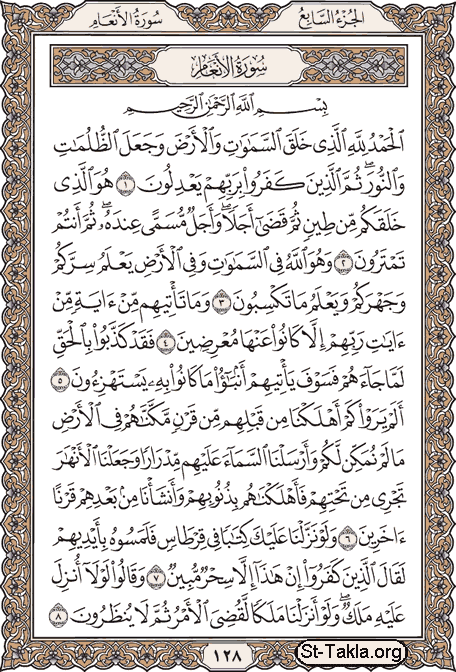 الجزء السابع سورة الأنعام
سُورَةُ الأَنْعَامِ
بِسْمِ ٱللَّهِ ٱلرَّحْمَٰنِ ٱلرَّحِيمِ
ٱلْحَمْدُ لِلَّهِ ٱلَّذِى خَلَقَ ٱلسَّمَٰوَٰتِ وَٱلْأَرْضَ وَجَعَلَ ٱلظُّلُمَٰتِ
وَٱلنُّورَ ۖ ثُمَّ ٱلَّذِينَ كَفَرُوا۟ بِرَبِّهِمْ يَعْدِلُونَ ١ هُوَ ٱلَّذِى
خَلَقَكُم مِّن طِينٍ ثُمَّ قَضَىٰٓ أَجَلًا ۖ وَأَجَلٌ مُّسَمًّى عِندَهُۥ ۖ ثُمَّ أَنتُمْ
تَمْتَرُونَ ٢ وَهُوَ ٱللَّهُ فِى ٱلسَّمَٰوَٰتِ وَفِى ٱلْأَرْضِ ۖ يَعْلَمُ سِرَّكُمْ
وَجَهْرَكُمْ وَيَعْلَمُ مَا تَكْسِبُونَ ٣ وَمَا تَأْتِيهِم مِّنْ ءَايَةٍ مِّنْ
ءَايَٰتِ رَبِّهِمْ إِلَّا كَانُوا۟ عَنْهَا مُعْرِضِينَ ٤ فَقَدْ كَذَّبُوا۟ بِٱلْحَقِّ
لَمَّا جَآءَهُمْ ۖ فَسَوْفَ يَأْتِيهِمْ أَنۢبَٰٓؤُا۟ مَا كَانُوا۟ بِهِۦ يَسْتَهْزِءُونَ ٥
أَلَمْ يَرَوْا۟ كَمْ أَهْلَكْنَا مِن قَبْلِهِم مِّن قَرْنٍ مَّكَّنَّٰهُمْ فِى ٱلْأَرْضِ
مَا لَمْ نُمَكِّن لَّكُمْ وَأَرْسَلْنَا ٱلسَّمَآءَ عَلَيْهِم مِّدْرَارًا وَجَعَلْنَا ٱلْأَنْهَٰرَ
تَجْرِى مِن تَحْتِهِمْ فَأَهْلَكْنَٰهُم بِذُنُوبِهِمْ وَأَنشَأْنَا مِنۢ بَعْدِهِمْ قَرْنًا
ءَاخَرِينَ ٦ وَلَوْ نَزَّلْنَا عَلَيْكَ كِتَٰبًا فِى قِرْطَاسٍ فَلَمَسُوهُ بِأَيْدِيهِمْ
لَقَالَ ٱلَّذِينَ كَفَرُوٓا۟ إِنْ هَٰذَآ إِلَّا سِحْرٌ مُّبِينٌ ٧ وَقَالُوا۟ لَوْلَآ أُنزِلَ
عَلَيْهِ مَلَكٌ ۖ وَلَوْ أَنزَلْنَا مَلَكًا لَّقُضِىَ ٱلْأَمْرُ ثُمَّ لَا يُنظَرُونَ ٨
١٢٨
St-Takla.org